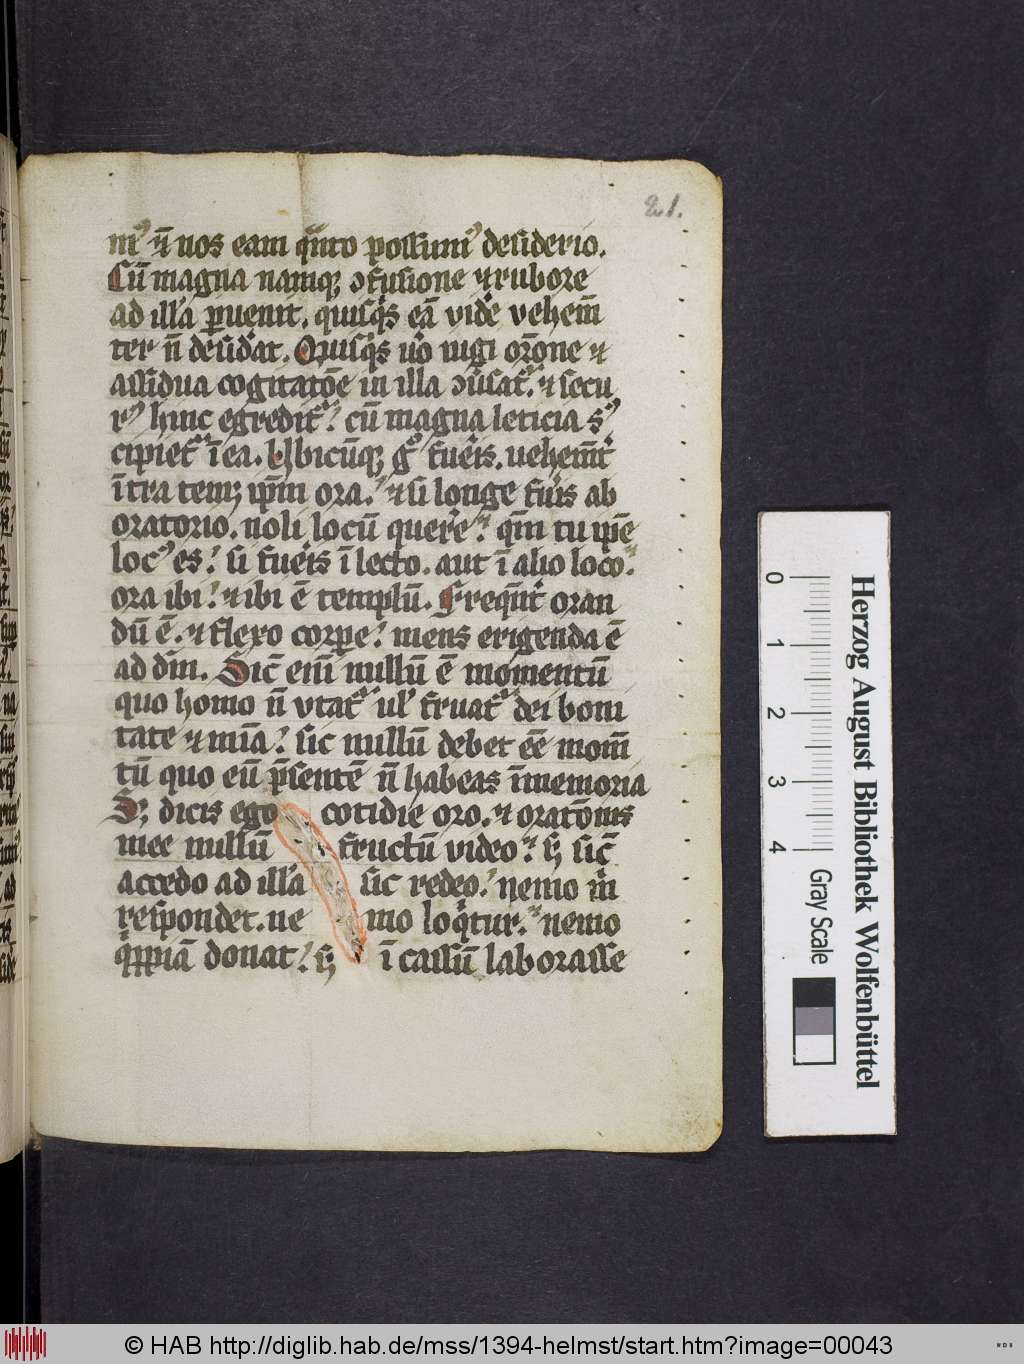 21.
m᷒ n̄ nos eam q̄nto possum᷒ desiderio.
Cū magna namqꝫ ꝯfusione ⁊ rubore
ad illā ꝑuenit. quisq̇s eā vidē vehem̄
ter n̄ desiďat. Quisq̇s ůo iugi or̄one ⁊
assidua cogitatōe in illa ꝯůsat᷑. ⁊ secu
r᷒ hinc egredit᷑. cū magna leticia s᷒
cipiet᷑ ī ea. Ubicūqꝫ gͦ fueīs. vehem̄t᷑
īn̄tra temꝫ ip̄m ora. ⁊ si longe fūis ab
oratorio. noli locū querē. qm̄ tu ip̄e
loc᷒ es. si fueīs ī lecto. aut ī alio loco.
ora ibi. ⁊ ibi ē templū. Freqn̄t᷑ oran
dū ē. ⁊ flexo corꝑe. mens erigenda ē
ad dm̄. Sic̄ enī nullū ē momentū
quo homo n̄ vtat᷑ ul̓ fruat᷑ dei boni
tate ⁊ mīa. sic nullū debet ēe mom̄
tū quo eū p̄sentē n̄ habeas ī memoria
Sꝫ dicis ego cotidie oro. ⁊ oratōnis
mee nullū fructū video. sꝫ sic̄
accedo ad illā sic redeo. nemo m̄
respondet. nemo loq̇tur. nemo
q̇ppiā donat. sꝫ ī cassū laborasse
Herzog August Bibliothek Wolfenbüttel
0 1 2 3 4
Gray Scale
© HAB http://diglib.hab.de/mss/1394-helmst/start.htm?image=00043